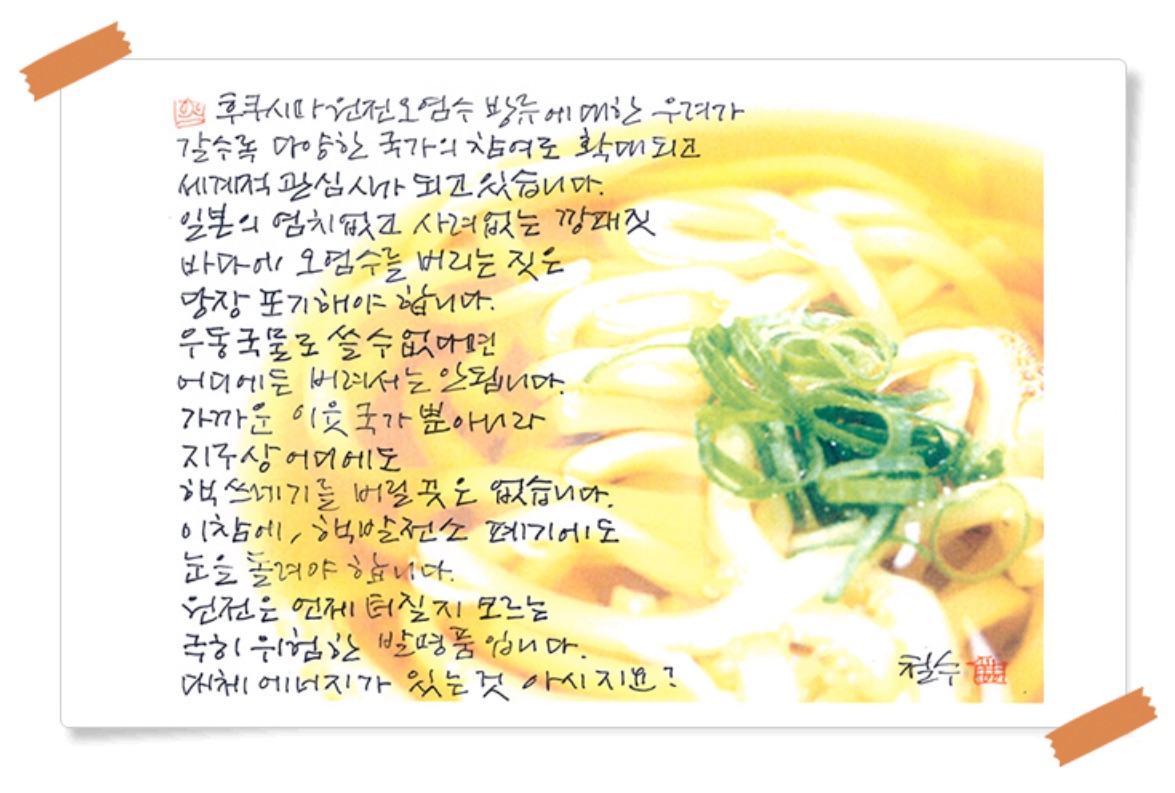 후쿠시마 원전오염수 방류에 대한 우려가
갈수록 다양한 국가의 참여로 확대되고
세계적 관심사가 되고 있습니다.
일본의 염치없고 사려없는 깡패짓
바다에 오염수를 버리는 짓은
당장 포기해야 합니다.
우동국물로 쓸 수 없다면
어디에든 버려서는 안됩니다.
가까운 이웃국가 뿐아니라
지구상 어디에도
핵쓰레기를 버릴 곳은 없습니다.
이참에, 핵발전소 폐기에도
눈을 돌려야 합니다.
원전은 언제 터질지 모르는
극히 위험한 발명품입니다.
대체에너지가 있는 것 아시지요?
철수